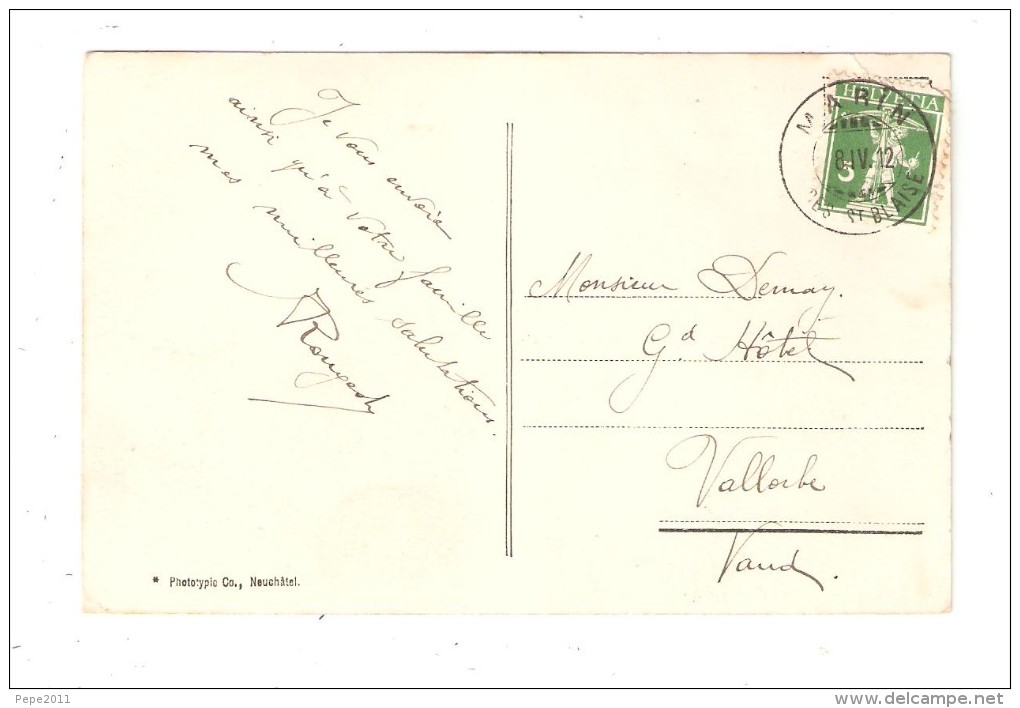 Je vous envoie
ainsi qu'à votre famille
mes meilleures salutations.
HELVETIA
5
MARIN
8.IV.12
PRÈS ST BLAISE
Monsieur Demay.
Gd Hôtel
Vallorbe
Vaud.
* Phototypie Co., Neuchâtel.
Pepe2011
www.delcampe.net